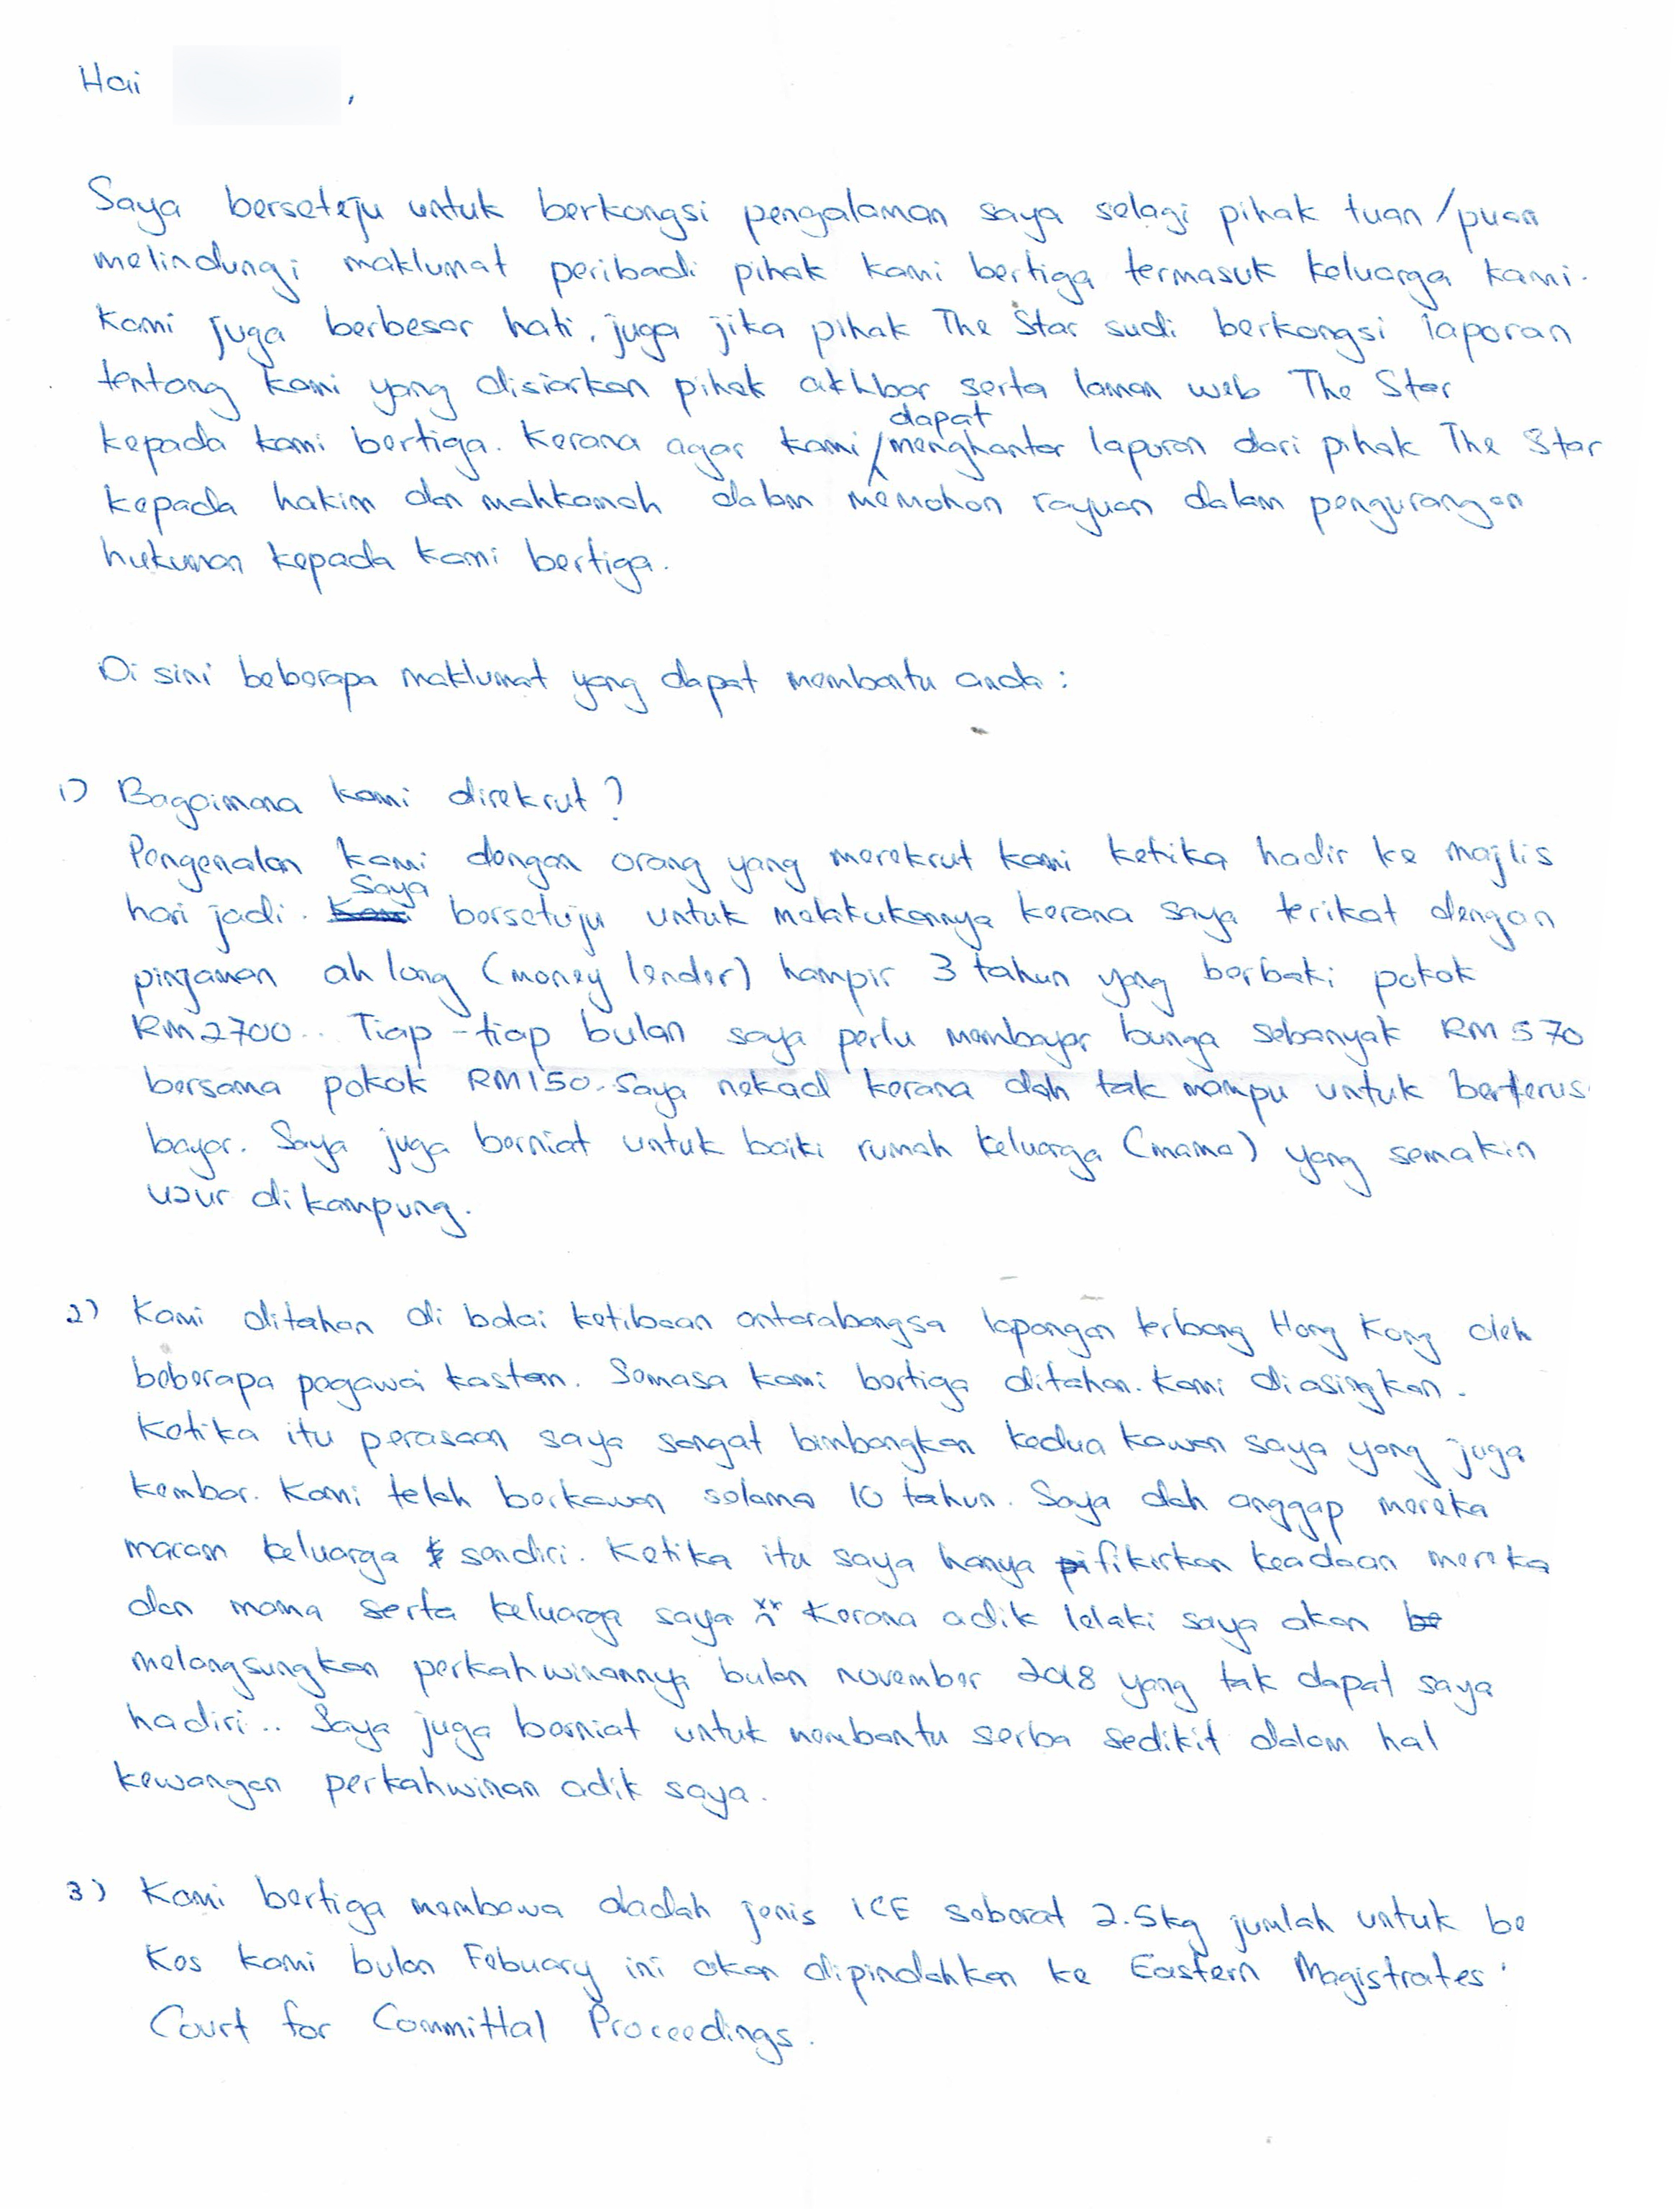 Hai ,
Saya bersetuju untuk berkongsi pengalaman saya selagi pihak tuan/puan
melindungi maklumat peribadi pihak kami bertiga termasuk keluarga kami.
Kami juga berbesar hati, juga jika pihak The Star sudi berkongsi laporan
tentang kami yang disiarkan pihak akhbar serta laman web The Star
kepada kami bertiga. Kerana agar kami dapat menghantar laporan dari pihak The Star
kepada hakim dan mahkamah dalam memohon rayuan dalam pengurangan
hukuman kepada kami bertiga.
Di sini beberapa maklumat yang dapat membantu anda :
1) Bagaimana kami direkrut ?
Pengenalan kami dengan orang yang merekrut kami ketika hadir ke majlis
hari jadi. Saya bersetuju untuk melakukannya kerana saya terikat dengan
pinjaman ah long (money lender) hampir 3 tahun yang berbaki pokok
RM2700.. Tiap-tiap bulan saya perlu membayar bunga sebanyak RM570
bersama pokok RM150. Saya nekad kerana dah tak mampu untuk berterus
bayar. Saya juga berniat untuk baiki rumah keluarga (mama) yang semakin
uzur dikampung.
2) Kami ditahan di balai ketibaan antarabangsa lapangan terbang Hong Kong oleh
beberapa pegawai kastam. Semasa kami bertiga ditahan. Kami diasingkan.
Ketika itu perasaan saya sangat bimbangkan kedua kawan saya yang juga
kembar. Kami telah berkawan selama 10 tahun. Saya dah anggap mereka
macam keluarga sendiri. Ketika itu saya hanya fikirkan keadaan mereka
dan mama serta keluarga saya Kerana adik lelaki saya akan
melangsungkan perkahwinannya bulan november 2018 yang tak dapat saya
hadiri.. Saya juga berniat untuk membantu serba sedikit dalam hal
kewangan perkahwinan adik saya.
3) Kami bertiga membawa dadah jenis ICE seberat 2.5kg jumlah untuk be
Kes kami bulan Febuary ini akan dipindahkan ke Eastern Magistrates'
Court for Committal Proceedings.